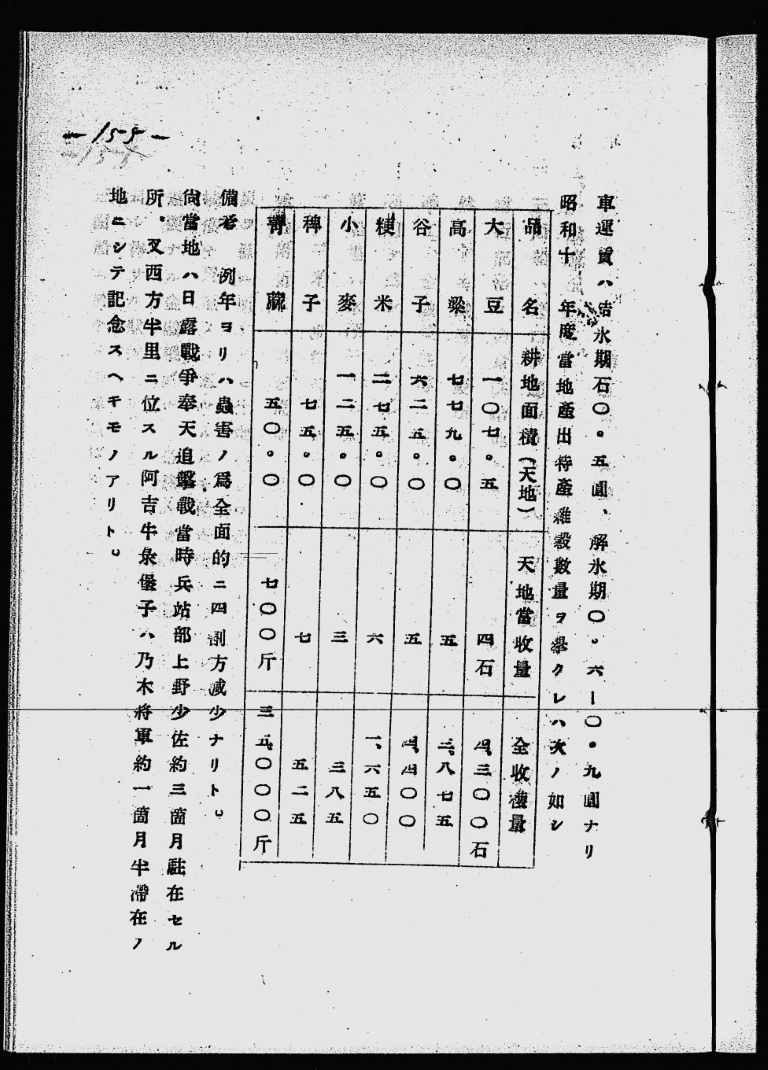 車運賃ハ吉氷期石〇。五圓、解氷期〇。六ー〇。九圓ナリ
昭和十 年度當地產出特產雜穀數量ヲ擧クレハ次ノ如シ
品名 耕地面積(天地) 天地當收量 全收穫量
大豆 一〇七。五 四石 四、三〇〇石
高粱 七七九。〇 五 三、八七五
谷子 六二五。〇 五 四、四〇〇
粳米 二七五。〇 六 一、六五〇
小麥 一二五。〇 三 三八五
稗子 七五。〇 七 五二五
靑麻 五〇。〇 七〇〇斤 三五、〇〇〇斤
備考 例年ヨリハ蟲害ノ爲全面的ニ四割方減少ナリト。
尙當地ハ日露戰爭奉天追擊戰當時兵站部上野少佐約三箇月駐在セル
所、又西方半里ニ位スル阿吉牛彔堡子ハ乃木將軍約一箇月半滯在ノ
地ニシテ記念スヘキモノアリト。
-159-